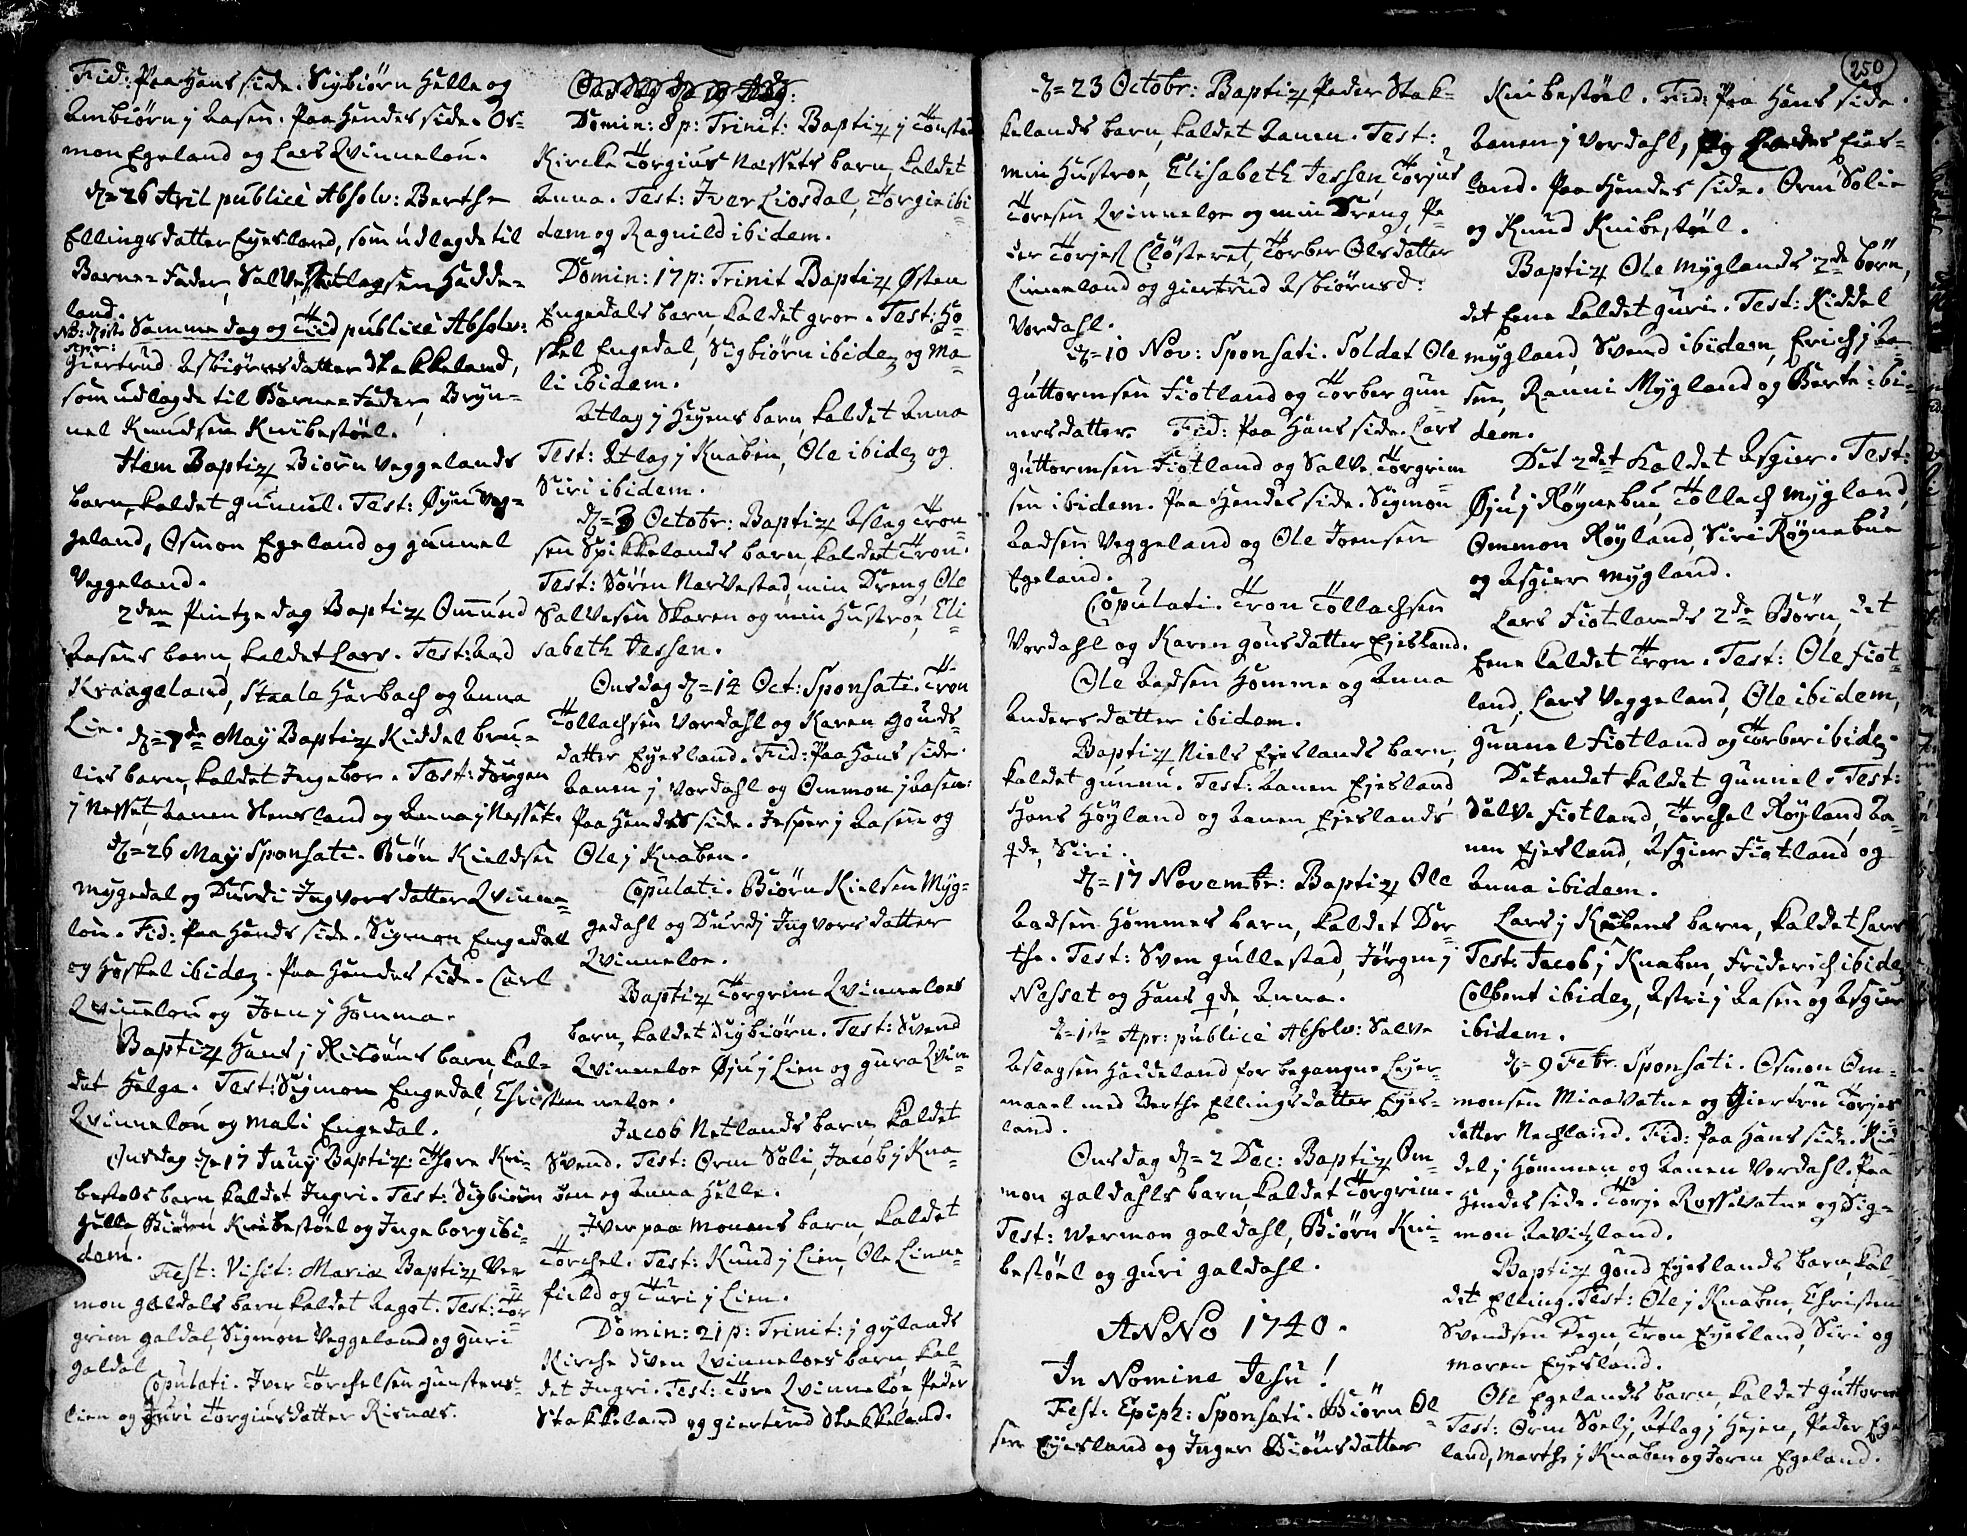 Fid: Paa Hans side. Sigbiørn Helle og
Anbiørn j Aasen. Paa Hendes side. Os-
mon Egeland og Lars Qvinnelou.
d=26 April publicè Absolv: Berthe
Ellingsdatter Eyesland, som udlagde til
Barne=Fader, Salve Atlagsen Hadde-
land.
Samme dag og Tiid publicè Absolv:
Giertrud Asbiørnsdatter Stakkeland,
som udlagde til Barne=Fader, Bryn-
nel Knudsen Knibestøel.
Item Baptiz Biørn Veggelands
barn, kaldet gunnul. Test: Øyu Veg-
geland, Osmon Egeland og gunnel
Veggeland.
2den Pintze dag Baptiz Omund
Aasens barn kaldet Lars. Test: Aad
Kraageland, Staale Harbach og Anna
Lie.
d=7de May Baptiz Kiddel brau-
lies barn, kaldet Ingebor. Test: Jørgen
j Nesset, Aanen Stensland og Anna j Nesset.
d=26 May Sponsati. Biøn Kieldsen
Mygedal og Durdi Ingvorsdatter Qvinne-
lou. Fid: Paa Hands side. Sigmon Engedal
og Høskel ibidem. Paa Hendes side. Carl
Qvinnelou og Joen j Homme.
Baptiz Hans j Risøuns barn, kal-
det Helge. Test: Sigmon Engedal, Christen
Qvinnelou og Mali Engedal.
Onsdag d=17 Juny Baptiz Thore Kni-
bestøls barn kaldet Ingri. Test: Sigbiørn
Helle, Biørn Knibestøel og Ingeborg ibi-
dem.
Fest: Visit: Mariæ Baptiz Ver-
mon galdals barn, kaldet Aagot. Test: Tor
grim galdal, Sigmon Veggeland og guri
galdal
Copulati. Iver Torchelsen gunsters-
lien og Guri Torgiusdatter Risnæs.
Domin: 8 p: Trinit: Baptiz j Tonstad
Kircke Torgius Næssets barn, kaldet
Anna. Test: Iver Liosdal, Torgie ibi-
dem og Ragnild ibidem.
Domin: 17 p: Trinit Baptiz Østen
Engedals barn, kaldet groe. Test: Hø-
skel Engedal, Sigbiørn ibidem og Ma-
li ibidem.
Atlag j Heyens barn, kaldet Anna
Test: Atlag j Knaben, Ole ibidem og
Siri ibidem.
d=3 Octobr: Baptiz Aslag Tron-
sen Spikkelands barn, kaldet Tron.
Test: Søren Narvestad, min Dreng, Ole
Salvesen Skaren og min Hustroe, Eli-
sabeth Jessen.
Onsdag d=14 Oct: Sponsati. Tron
Tollachsen Vordahl og Karen Gouds-
datter Eyesland. Fid: Paa Hans side
Aanen j Vordahl og Ommon j Aasen:
Paa Hendes side. Jesper j Aasen og
Ole j Knaben.
Copulati. Biørn Kielsen Myg-
gedahl og Durdj Ingvorsdatter
Qvinneloe.
Baptiz Torgrim Qvinneloes
barn, kaldet Sigbiørn. Test: Svend
Qvinneloe Øyu j Lien og gura Qvin-
neloe.
Jacob Netlands barn, kaldet
Svend. Test: Orm Søli, Jacob j Kna-
ben og Anna Helle.
Iver paa Monens barn, kaldet
Torchel. Test: Knud j Lien, Ole Linne-
field og Turi j Lien.
Domin: 21 p: Trinit: j gylands
Kirche Sven Qvinneloes barn, kal-
det Ingri. Test: Tore Qvinneloe, Peder
Stakkeland og giertrud Stakkeland.
250
d=23 Octobr: Baptiz Peder Stak-
kelands barn, kaldet Aanen. Test:
min Hustroe, Elisabeth Jessen, Torjus
Toresen Qvinneloe og min Dreng, Pe
der Torjes Closteret, Torber Olsdatter
Linneland og giertrud Asbiørnsd:
Vordahl.
d=10 Nov: Sponsati. Soldat Ole
guttormsen Fiotland og Torber gun
nersdatter. Fid: Paa Hans side. Lars
guttormsen Fiotland og Salve Torgrim
sen ibidem. Paa Hendes side. Sigmon
Aadsen Veggeland og Ole Joensen
Egeland.
Copulati. Tron Tollachsen
Vordahl og Karen gousdatter Ejesland.
Ole Aadsen Homme og Anna
Andersdatter ibidem.
Baptiz Niels Ejeslands barn,
kaldet gunnu. Test: Aanen Ejesland
Hans Höyland og Aanen Ejeslands
qde, Siri.
d=17 Novembr: Baptiz Ole
Aadsen Hommes barn, kaldet Dor-
the. Test: Sven gullestad, Jørgen j
Nesset og Hans qde, Anna.
d=1ste Apr: publicè Absolv: Salve
Aslagsen Haddeland for begangne Leyer-
maael med Berthe Ellingsdatter Eyes-
land.
Onsdag d=2 Dec: Baptiz Om-
mon galdahls barn, kaldet Torgrim.
Test: Wermon galdahl, Biørn Kni-
bestøel og guri galdahl.
ANNO 1740.
In Nomine Jesu!
Fest: Epiph: Sponsati. Biørn Ol-
sen Eyesland og Inger Biønsdatter
Knibestøel. Fid: Paa Hans side.
Aanen j Vordahl, Eies-
land. Paa Hendes side. Orm Solie
og Knud Knibestøel.
Baptiz Ole Myglands 2de børn,
det Eene kaldet guri. Test: Kiddel
Mygland, Svend ibidem, Erich j Aa-
sen, Ranni Mygland og Berte ibi-
dem.
Det 2det kaldet Asgier. Test:
Øju j Røynebue, Tollach Mygland,
Ommon Røyland, Siri Røynebue
og Asgier Mygland.
Lars Fiotlands 2de Børn, det
Eene kaldet Tron. Test: Ole Fiot-
land, Lars Veggeland, Ole ibidem,
Gunnel Fiotland og Torber ibidem.
Det andet kaldet Gunnel. Test:
Salve Fiotland, Torchel Røyland, Aa-
nen Ejesland, Asgier Fiotland og
Anna ibidem.
Lars j Knabens barn, kaldet Lars
Test: Jacob j Knaben, Friderich ibidem
Colbent ibidem, Astri j Aasen og Asgier
ibidem.
d=9 Febr. Sponsati. Osmon Om-
monsen Miaavatne og Giertru Torjes
datter Nechland. Fid: Paa Hans side. Kid
del j Hommen og Aanen Vordahl. Paa
Hendes side. Torje Rossevatne og Sig-
mon Aavitzland.
Baptiz Goud Eyeslands barn, kal-
det Elling. Test: Ole j Knaben, Christen
Svendsen Degn, Tron Eyesland, Siri og
Maren Eyesland.
Ole Egelands barn, kaldet guttorm
Test: Orm Soelj, Atlag j Hejen, Peder Ege
land, Marthe j Knaben og Joren Egeland.